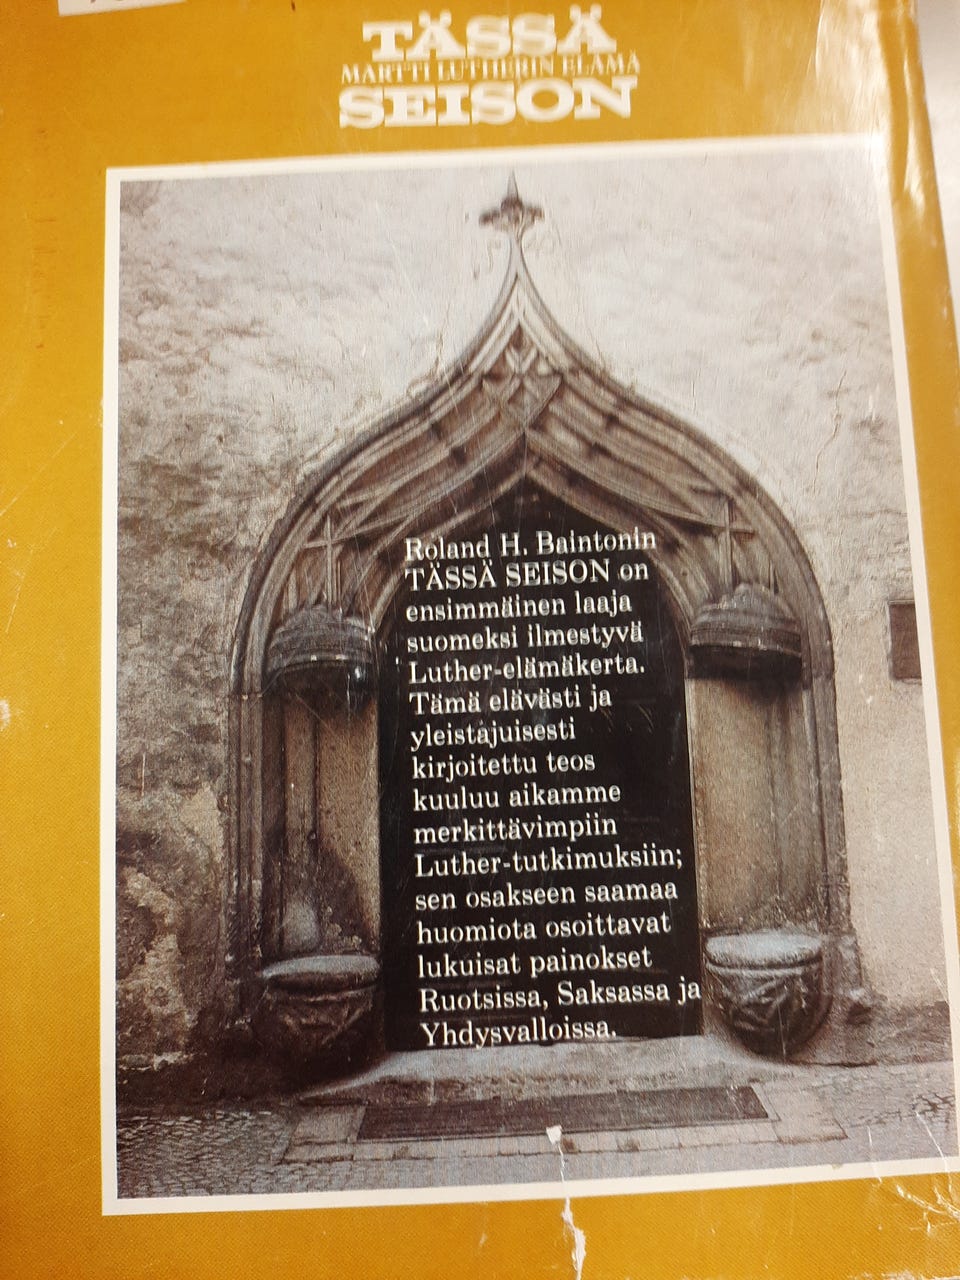 TÄSSÄ
MARTTI LUTHERIN ELÄMÄ
SEISON
Roland H. Baintonin
TÄSSÄ SEISON on
ensimmäinen laaja
suomeksi ilmestyvä
Luther-elämäkerta.
Tämä elävästi ja
yleistajuisesti
kirjoitettu teos
kuuluu aikamme
merkittävimpiin
Luther-tutkimuksiin;
sen osakseen saamaa
huomiota osoittavat
lukuisat painokset
Ruotsissa, Saksassa ja
Yhdysvalloissa.